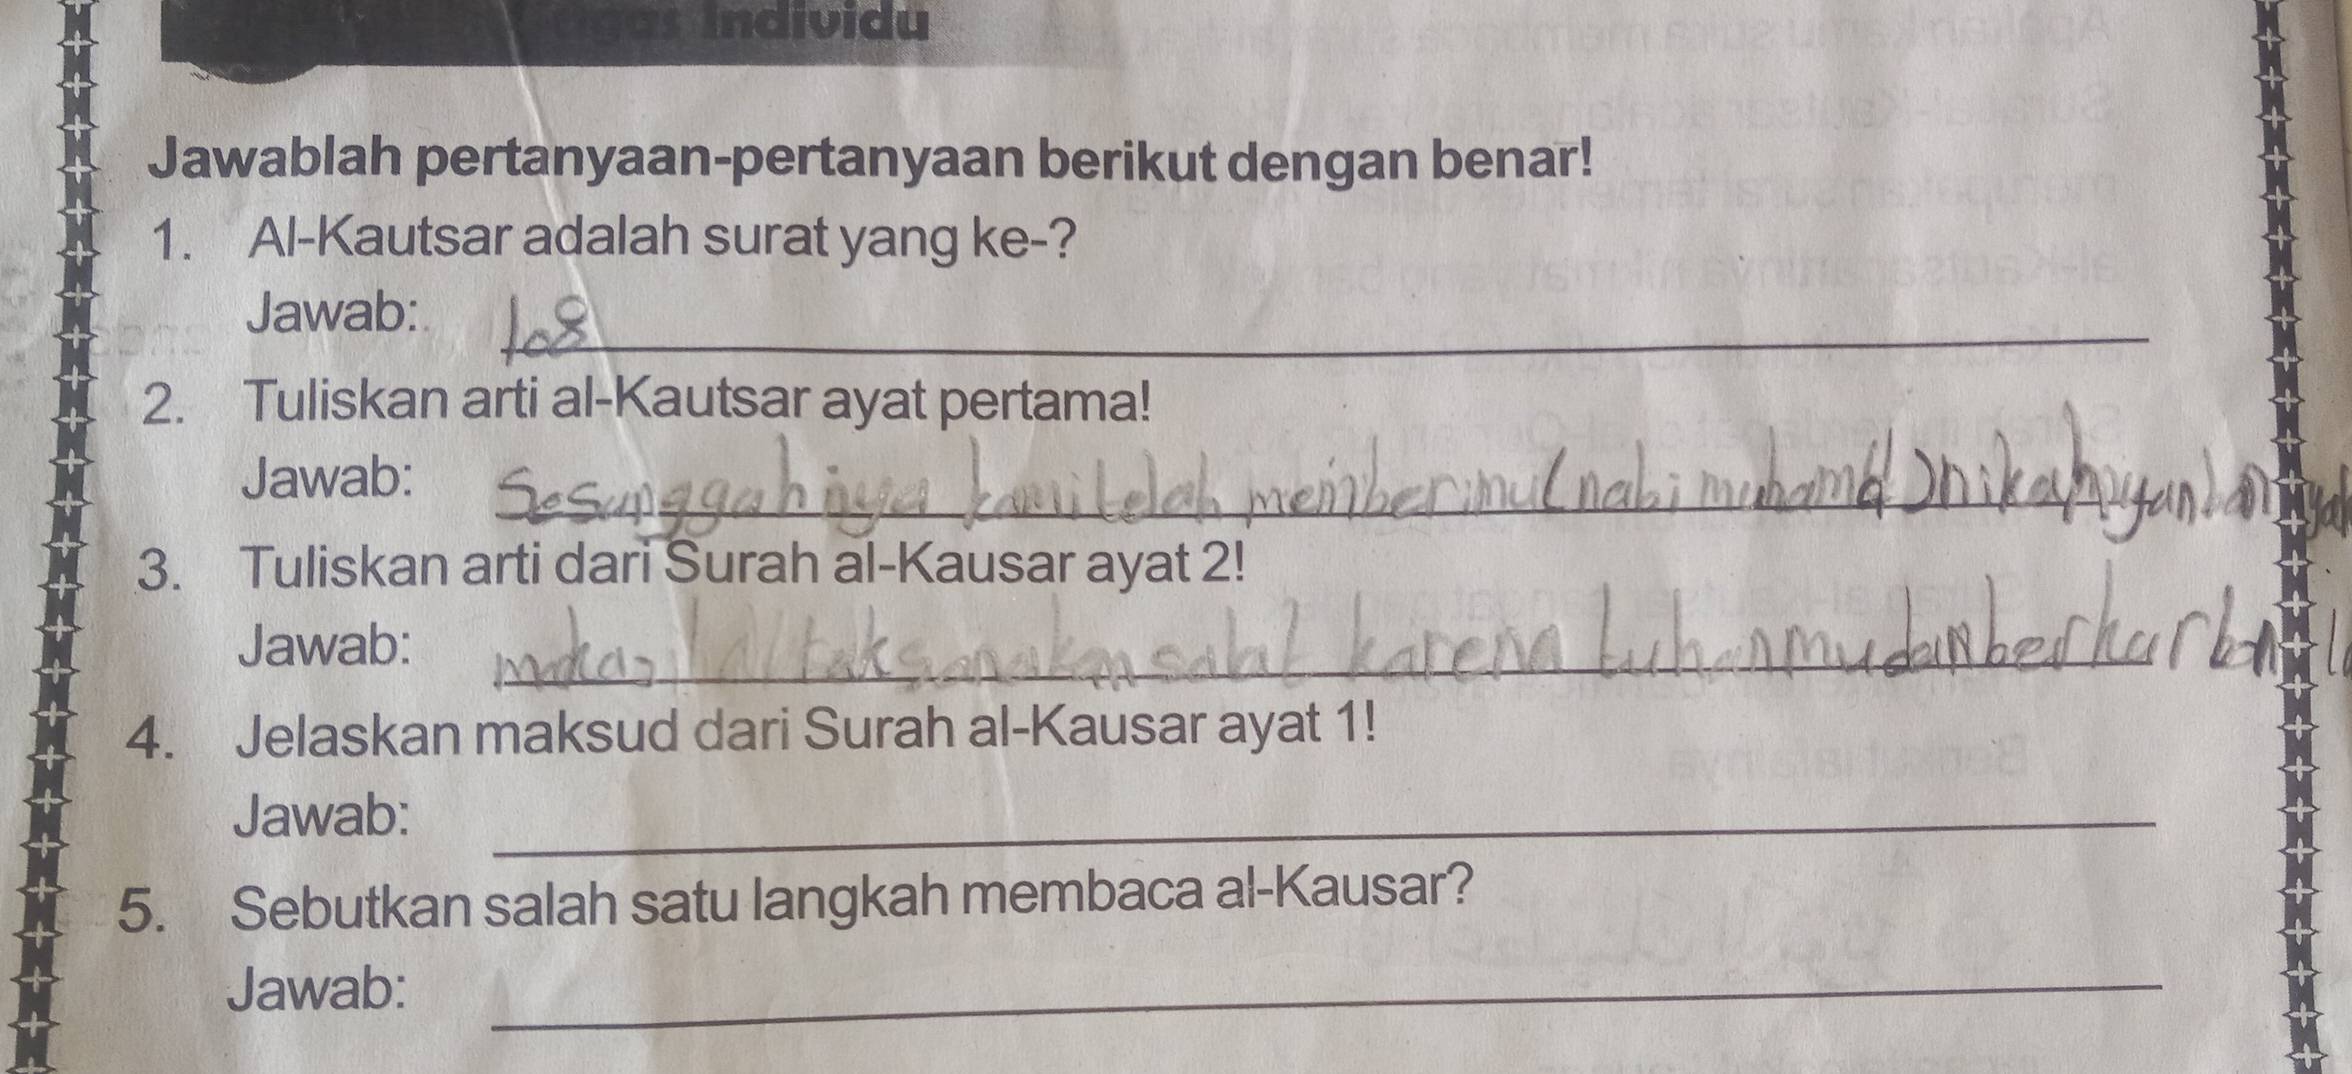 Tugas Individu
Jawablah pertanyaan-pertanyaan berikut dengan benar!
1. Al-Kautsar adalah surat yang ke-?
Jawab: 108
2. Tuliskan arti al-Kautsar ayat pertama!
Jawab: Sesunggahnya kami telah memberimu nabi muhamad
3. Tuliskan arti dari Surah al-Kausar ayat 2!
Jawab: salat karena tuhanmu dan berkurban
4. Jelaskan maksud dari Surah al-Kausar ayat 1!
Jawab:
5. Sebutkan salah satu langkah membaca al-Kausar?
Jawab: